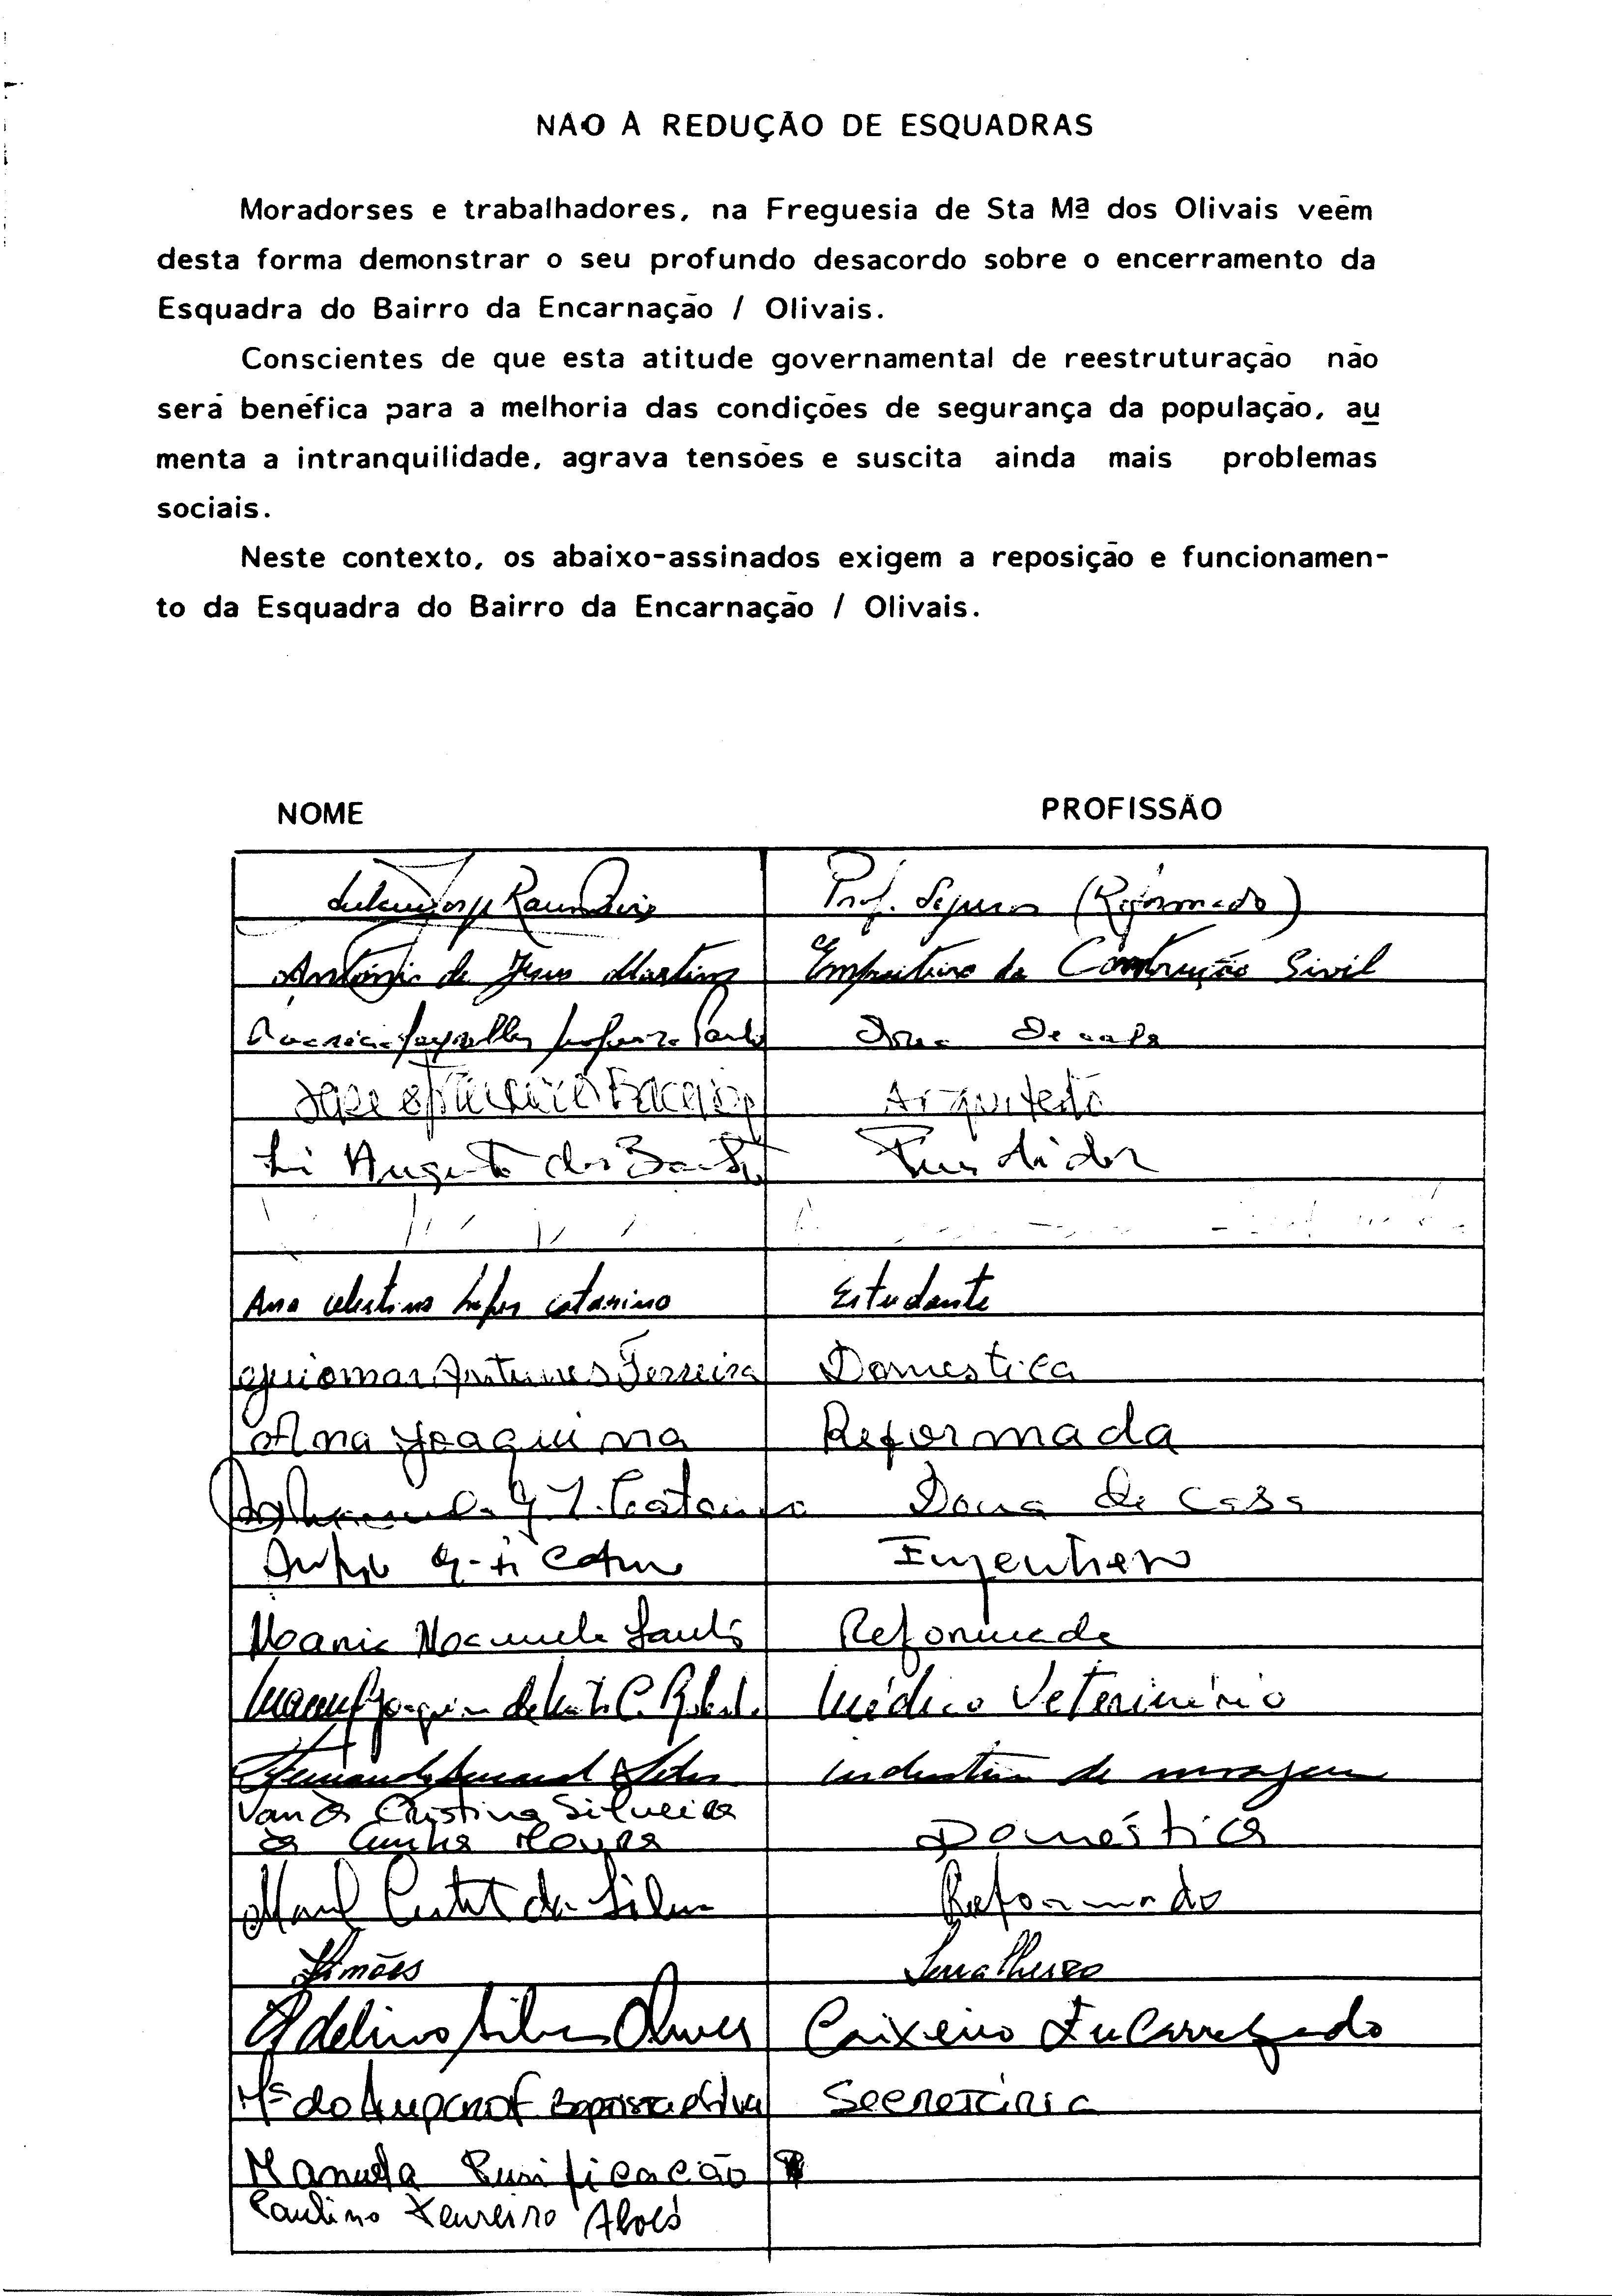 NÃO À REDUÇÃO DE ESQUADRAS
Moradorses e trabalhadores, na Freguesia de Sta Mª dos Olivais veêm
desta forma demonstrar o seu profundo desacordo sobre o encerramento da
Esquadra do Bairro da Encarnação / Olivais.
Conscientes de que esta atitude governamental de reestruturação não
será benéfica para a melhoria das condições de segurança da população, au
menta a intranquilidade, agrava tensões e suscita ainda mais problemas
sociais.
Neste contexto, os abaixo-assinados exigem a reposição e funcionamen-
to da Esquadra do Bairro da Encarnação / Olivais.
NOME PROFISSÃO
Prof. (Reformado)
António de Jesus Martins Empreiteiro da Construção Sivil
Dona de casa
Arquitecto
Augusto dos
Ana Celestina Lopes Catarino Estudante
Guiomar Antunes Ferreira Domestica
Ana Joaquina Reformada
Dona de Casa
Engenheiro
Maria Manuela Santos Reformada
Manuel Joaquim de Médico Veterinário
Fernando de
Vanda Cristina Silveira
da Cunha Moura Doméstica
da Silva Reformado
Simões Serralheiro
Adelino Silva Alves Caixeiro Encarregado
Mª do Amparo F. Baptista e Silva Secretária
Manuela Purificação
Paulino Xenreiro Alves